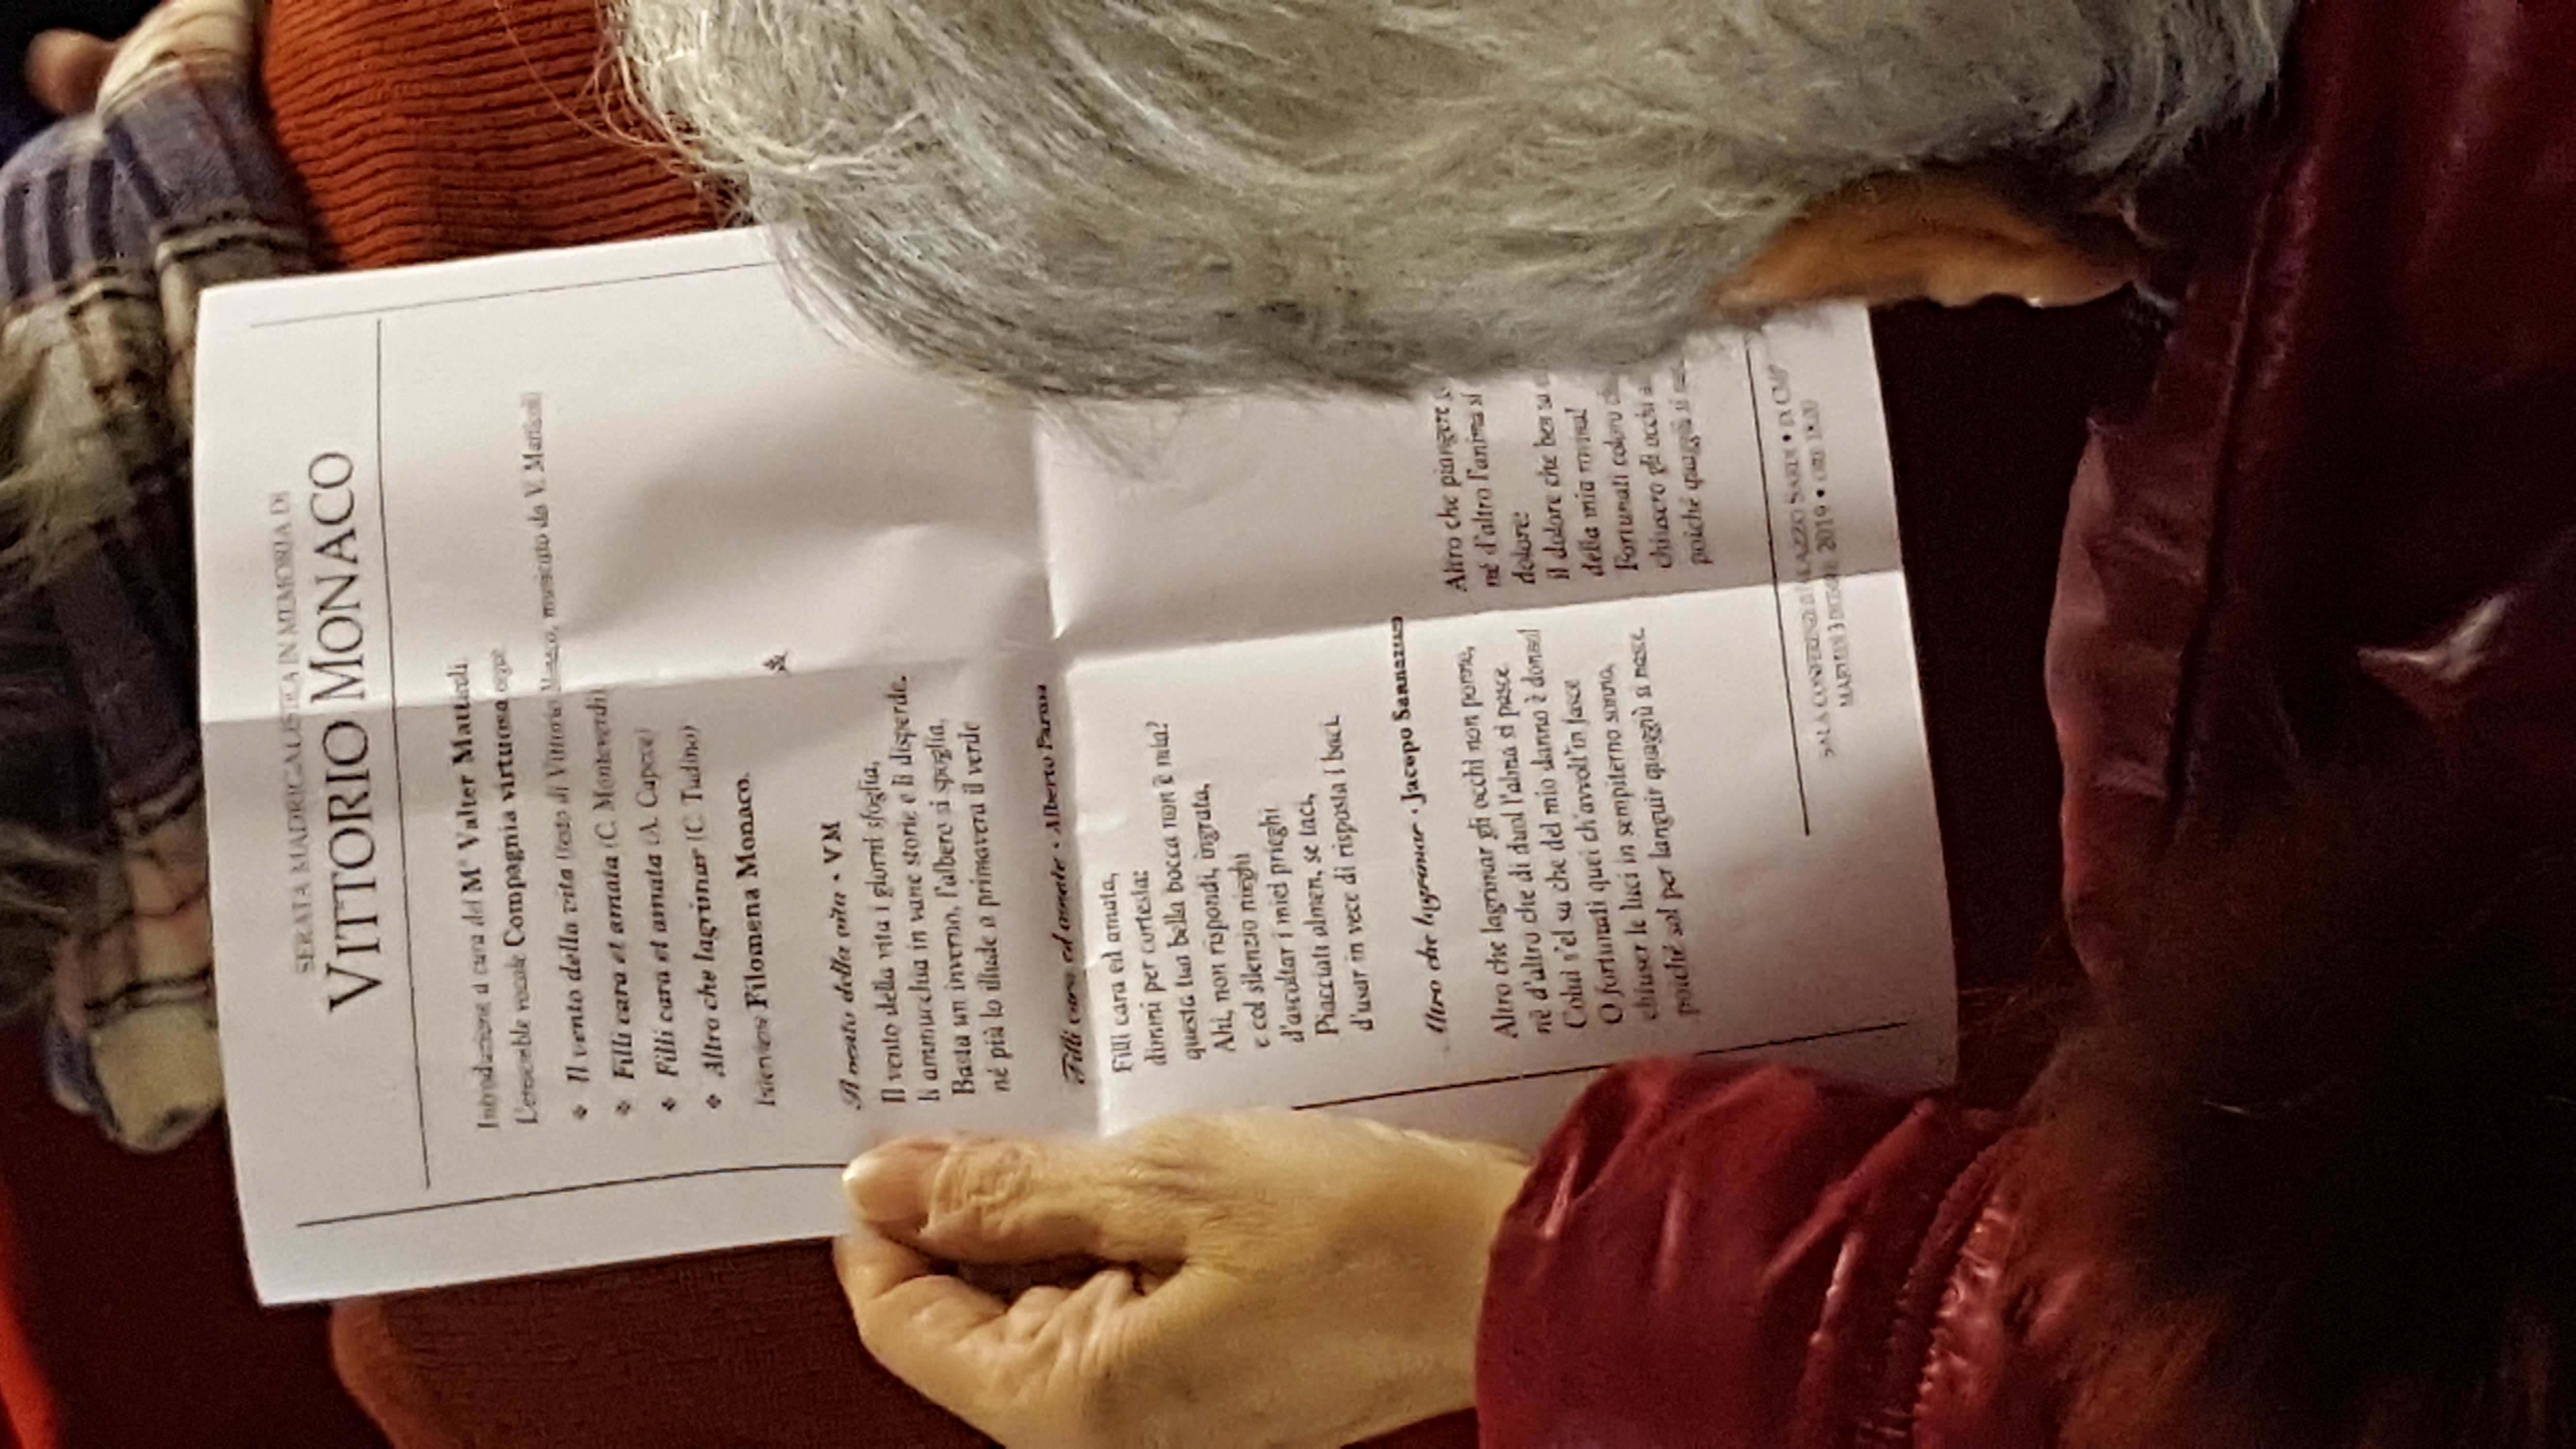 SERATA MADRIGALISTICA IN MEMORIA DI
VITTORIO MONACO
Introduzione a cura del M° Valter Matticoli
L'ensemble vocale Compagnia virtuosa esegue
❖ Il vento della vita (testo di Vittorio Monaco, musicato da V. Matticoli)
❖ Filli cara et amata (C. Monteverdi)
❖ Filli cara et amata (A. Capece)
❖ Altro che lagrimar (C. Tudino)
Interviene Filomena Monaco.
Il vento della vita • VM
Il vento della vita i giorni sfoglia,
li ammucchia in varie storie e li disperde.
Basta un inverno, l'albero si spoglia,
né più lo illude a primavera il verde
Filli cara ed amata • Alberto Parma
Filli cara ed amata,
dimmi per cortesia:
questa tua bella bocca non è mia?
Ahi, non rispondi, ingrata,
e col silenzio nieghi
d'ascoltar i miei prieghi
Piacciati almen, se taci,
d'usar in vece di risposta i baci.
Altro che lagrimar • Jacopo Sannazaro
Altro che lagrimar gli occhi non ponno,
né d'altro che di duol l'alma si pasce
Colui s'el sa che del mio danno è donno!
O fortunati quei ch'avvolt'in fasce
chiuser le luci in sempiterno sonno,
poiché sol per languir quaggiù si nasce.
Altro che piangere
né d'altro l'anima si
dolore:
il dolore che ben sa
della mia rovina!
Fortunati coloro
chiusero gli occhi
poiché quaggiù si
SALA CONFERENZE DI PALAZZO SARDI •
MARTEDÌ 3 2019 • ORE